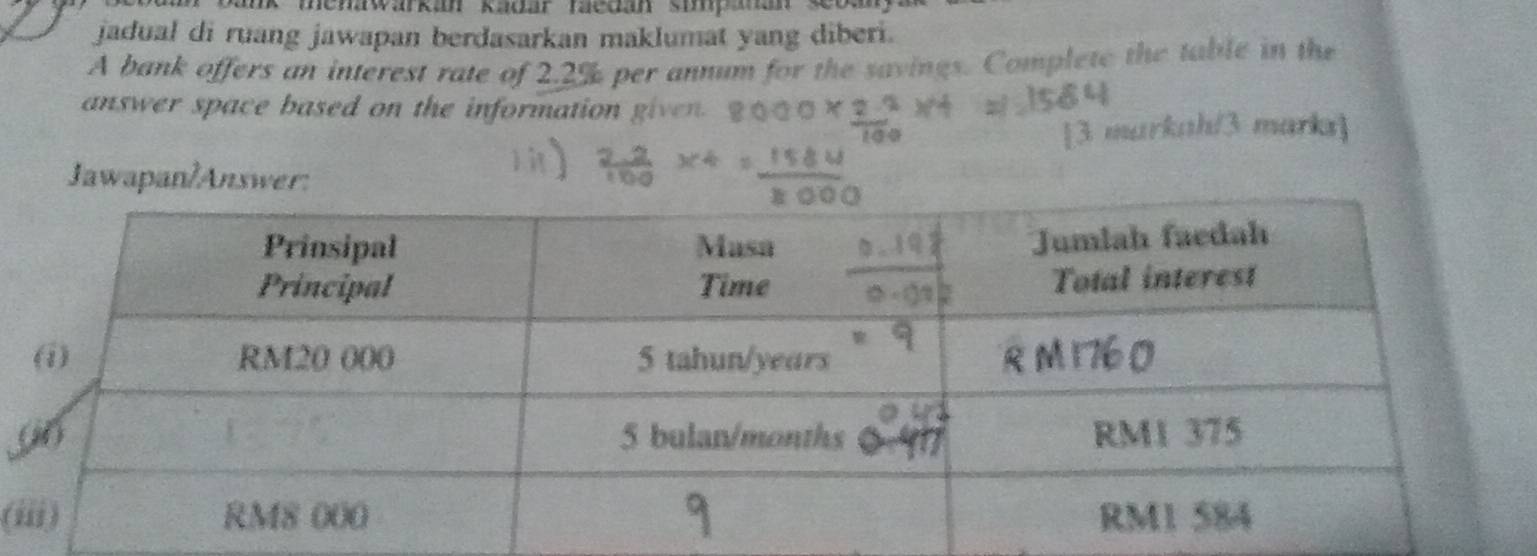 menawarkan kadar faedah simpanan
jadual di ruang jawapan berdasarkan maklumat yang diberi.
A bank offers an interest rate of 2.2% per annum for the savings. Complete the table in the
answer space based on the information given. 8000 × 2.2/100 × 4 = 1584
[3 markah/3 marks]
iii) 2.2/100 × 4 = 1584/8000
Jawapan/Answer:
Prinsipal Masa Jumlah faedah
Principal Time Total interest
= 9
(i) RM20 000 5 tahun/years RM1760
(ii) 5 bulan/months RM1 375
(iii) RM8 000 9 RM1 584